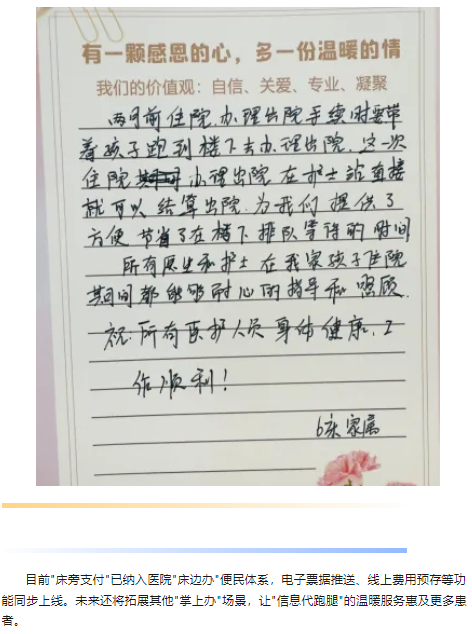 有一颗感恩的心，多一份温暖的情
我们的价值观：自信、关爱、专业、凝聚
两月前住院，办理出院手续时要带
着孩子跑到楼下去办理出院，这一次
住院办理出院在护士站直接
就可以结算出院，为我们提供了
方便，节省了在楼下排队等待的时间
所有医生和护士在我家孩子住院
期间都能够耐心的指导和照顾。
祝：所有医护人员身体健康，工
作顺利！
6床家属
目前"床旁支付"已纳入医院"床边办"便民体系，电子票据推送、线上费用预存等功
能同步上线。未来还将拓展其他"掌上办"场景，让"信息代跑腿"的温暖服务惠及更多患
者。